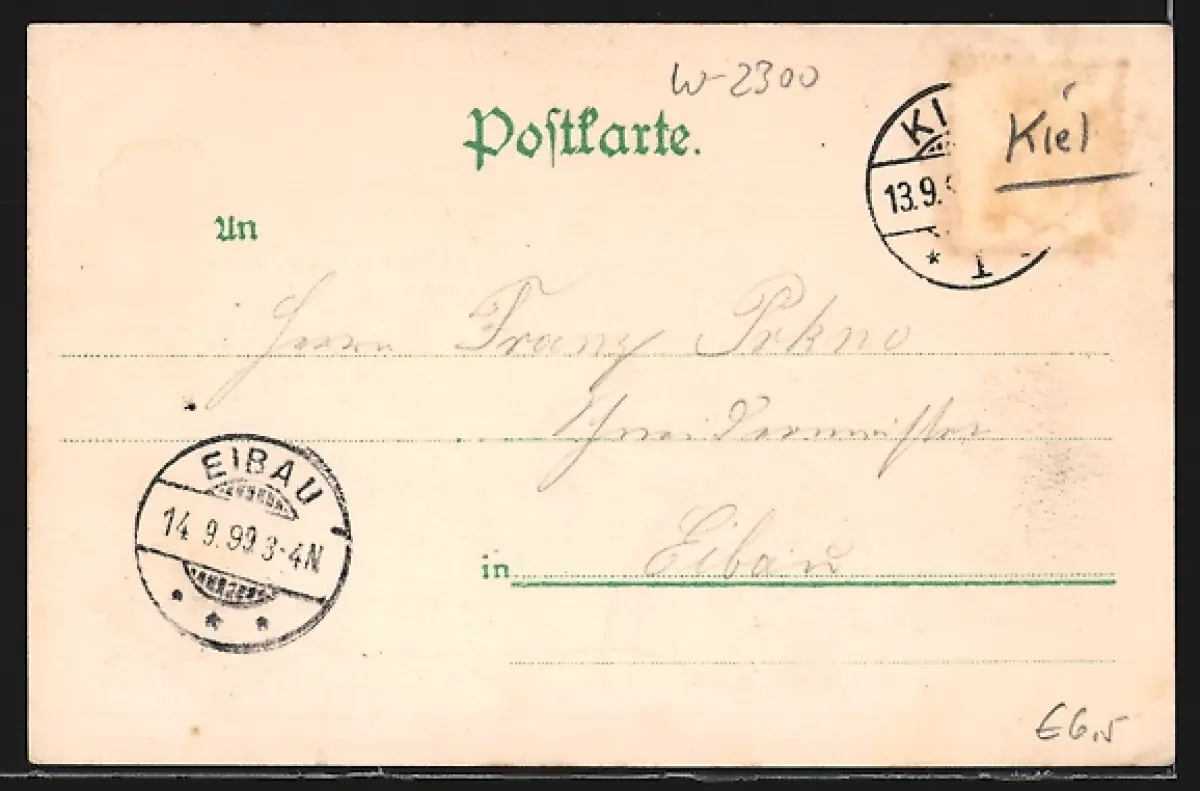 W-2300
Postkarte.
KI
13.9.9
1
Kiel
An
Herrn Franz Prkno
Schneidermeister
EIBAU
14.9.99.3-4N
in Eibau
€6,5